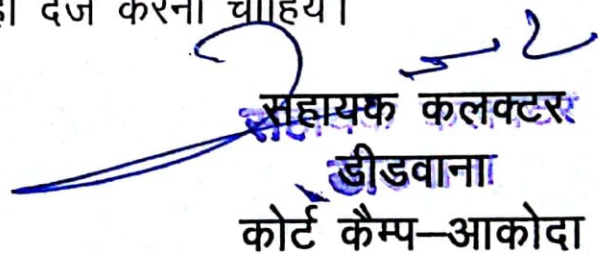 दर्ज करना चाहिये।
सहायक कलक्टर
डीडवाना
कोर्ट कैम्प–आकोदा